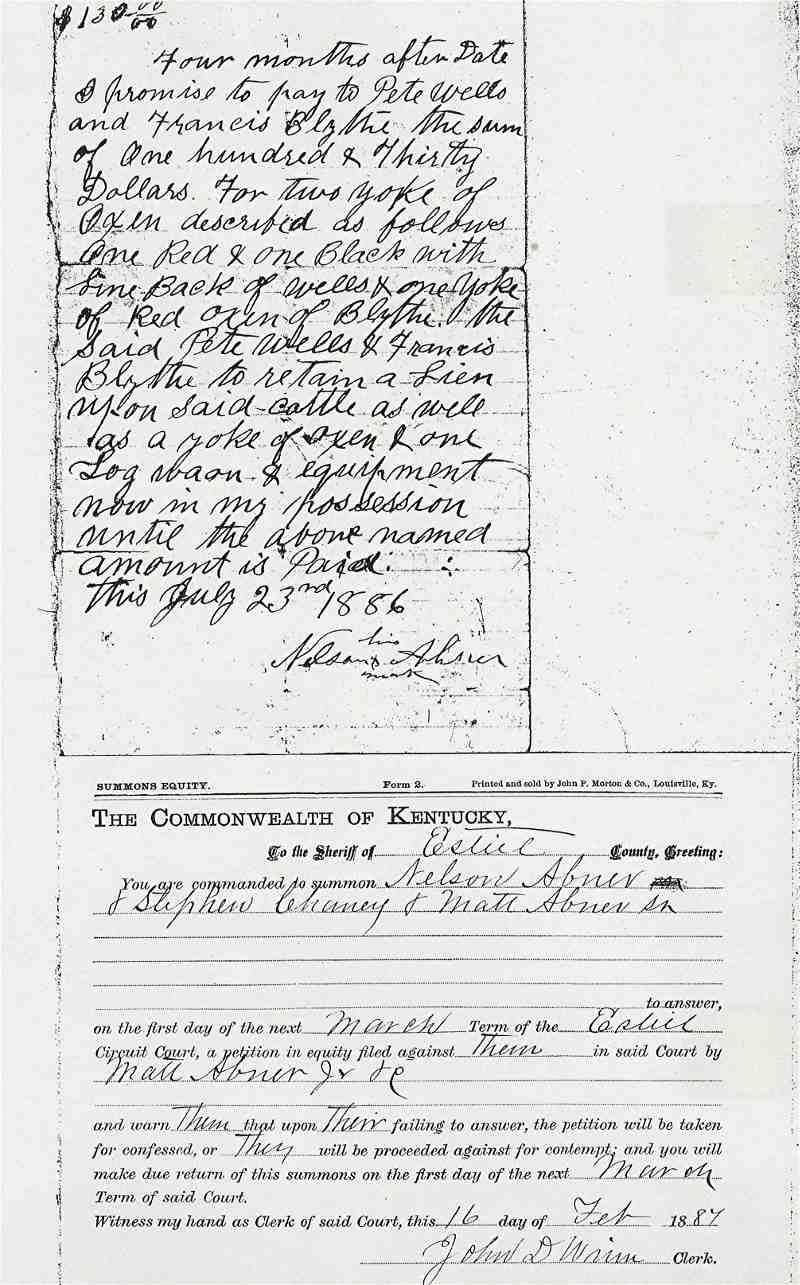 $130 00/00
Four months after Date
I promise to pay to Pete Wells
and Francis Blythe the sum
of One hundred & Thirty
Dollars. For two yoke of
Oxen described as follows
One Red & one Black with
Line Back of Wells & one Yoke
of Red oxen of Blythe. the
said Pete Wells & Francis
Blythe to retain a Lien
upon said cattle as well
as a yoke of oxen & one
Log waon & equipment
now in my possession
until the above named
amount is Paid.
this July 23rd 1886
his
Nelson x Abner
mark
SUMMONS EQUITY. Form 2. Printed and sold by John P. Morton & Co., Louisville, Ky.
THE COMMONWEALTH OF KENTUCKY,
To the Sheriff of Estill County, Greeting:
You are commanded to summon Nelson Abner
& Stephen Chaney & Matt Abner Sr
to answer,
on the first day of the next March Term of the Estill
Circuit Court, a petition in equity filed against Them in said Court by
Matt Abner Jr &c
and warn Them that upon Their failing to answer, the petition will be taken
for confessed, or They will be proceeded against for contempt; and you will
make due return of this summons on the first day of the next March
Term of said Court.
Witness my hand as Clerk of said Court, this 16 day of Feb 1887
John D Winn Clerk.